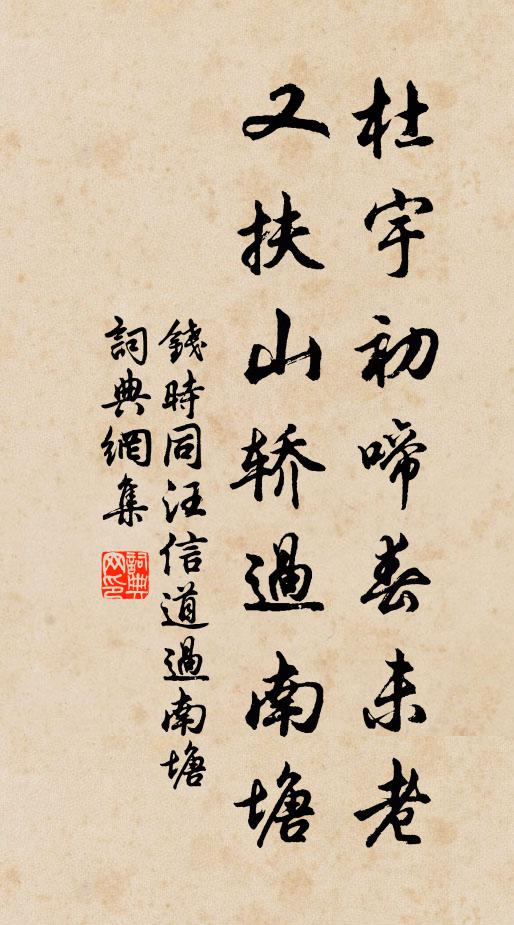 杜宇初啼春未老
又扶山轿過南塘
錢時同汪信道過南塘
詞典網集
詞典網印